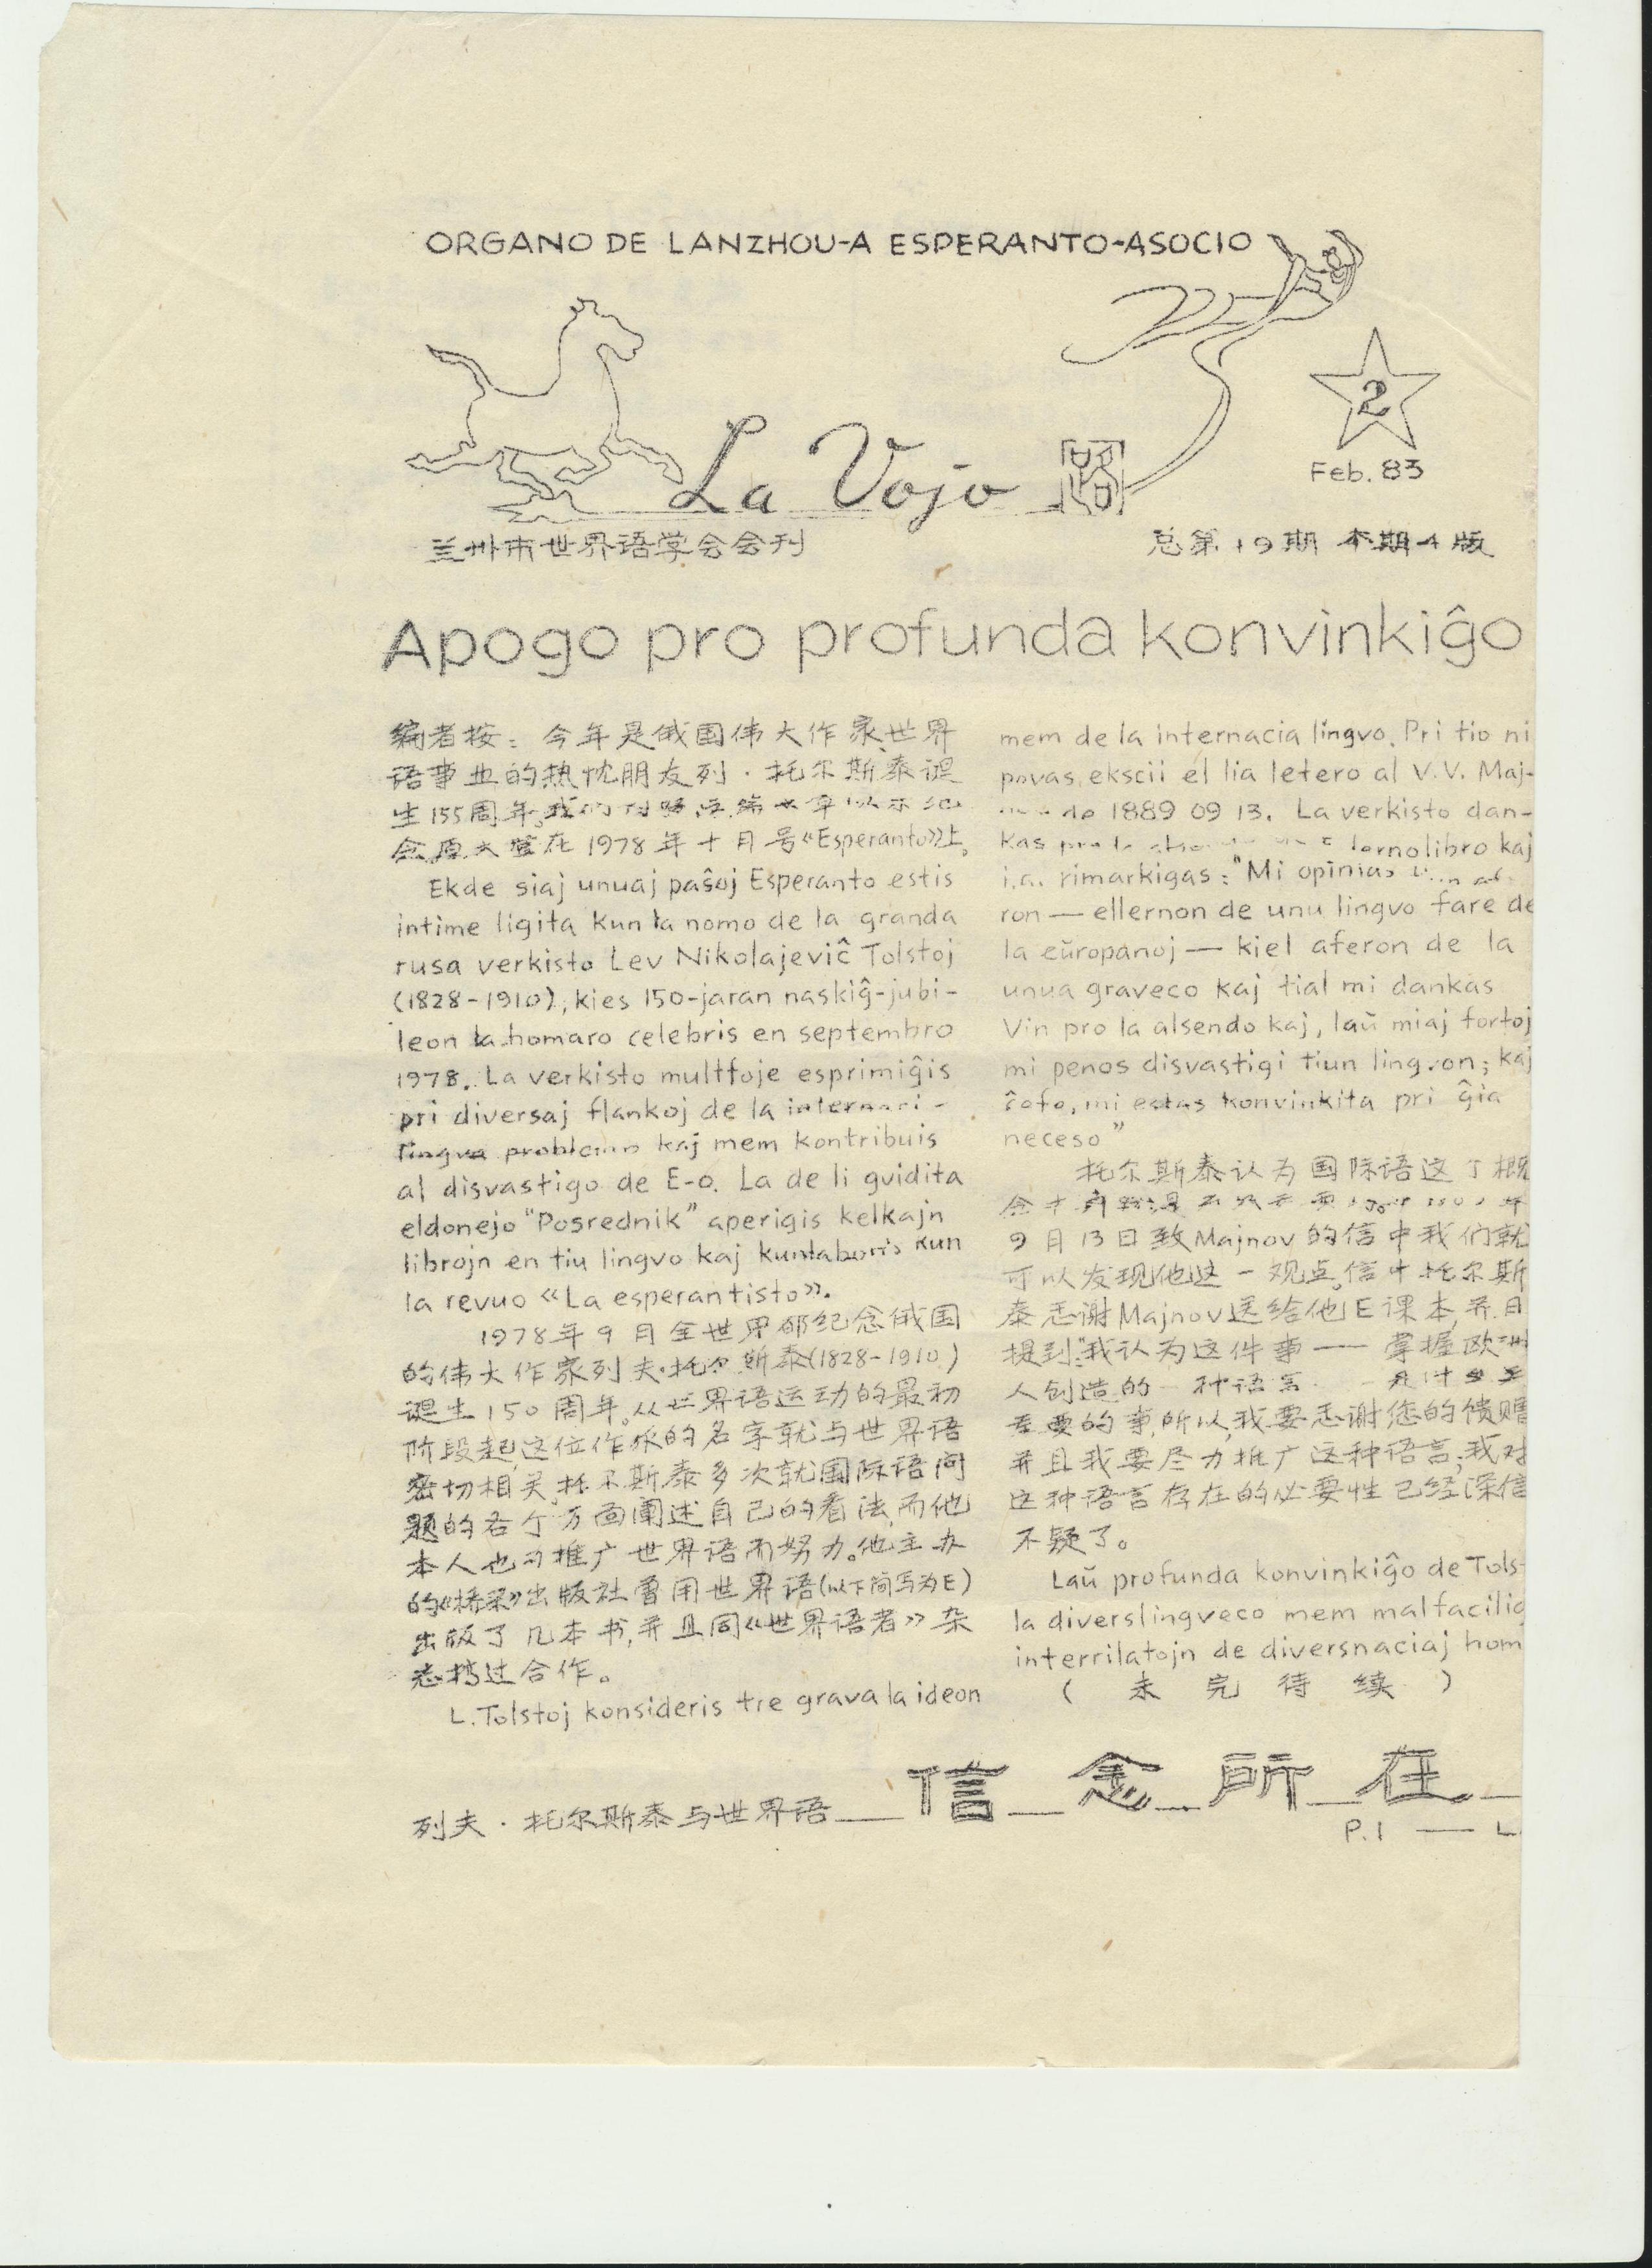 ORGANO DE LANZHOU-A ESPERANTO-ASOCIO
2
Feb. 83
La Vojo 路
兰州市世界语学会会刊
总第19期 本期4版
Apogo pro profunda konvinkiĝo
编者按：今年是俄国伟大作家、世界
语事业的热忱朋友列·托尔斯泰诞
生155周年,我们 以示纪
念.原文登在1978年十月号《Esperanto》上。
Ekde siaj unuaj paŝoj Esperanto estis
intime ligita kun la nomo de la granda
rusa verkisto Lev Nikolajeviĉ Tolstoj
(1828-1910), kies 150-jaran naskiĝ-jubi-
leon la homaro celebris en septembro
1978. La verkisto multfoje esprimiĝis
pri diversaj flankoj de la internaci-
lingva problemo kaj mem kontribuis
al disvastigo de E-o. La de li gvidita
eldonejo "Posrednik" aperigis kelkajn
librojn en tiu lingvo kaj kunlaboris kun
la revuo «La esperantisto».
1978年9月全世界都纪念俄国
的伟大作家列夫·托尔斯泰(1828-1910)
诞生150周年。从世界语运动的最初
阶段起,这位作家的名字就与世界语
密切相关,托尔斯泰多次就国际语问
题的各个方面阐述自己的看法,而他
本人也为推广世界语而努力。他主办
的《桥梁》出版社曾用世界语(以下简写为E)
出版了几本书,并且同《世界语者》杂
志搞过合作。
L. Tolstoj konsideris tre grava la ideon
mem de la internacia lingvo. Pri tio ni
povas ekscii el lia letero al V.V. Maj-
de 1889 09 13. La verkisto dan-
kas lernolibro kaj
i.a. rimarkigas: "Mi opinias
ron — ellernon de unu lingvo fare de
la eŭropanoj — kiel aferon de la
unua graveco kaj tial mi dankas
Vin pro la alsendo kaj, laŭ miaj fortoj
mi penos disvastigi tiun lingvon; kaj
ĉefe, mi estas konvinkita pri ĝia
neceso"
托尔斯泰认为国际语这个概
念本身
9月13日致Majnov的信中我们就
可以发现他这一观点,信中托尔斯
泰感谢Majnov送给他E课本,并且
提到:"我认为这件事——掌握欧洲
人创造的一种语言
重要的事,所以,我要感谢您的馈赠
并且我要尽力推广这种语言;我对
这种语言存在的必要性已经深信
不疑了。
Laŭ profunda konvinkiĝo de Tols-
la diverslingveco mem malfacilig
interrilatojn de diversnaciaj hom
（未完待续）
列夫·托尔斯泰与世界语——信念所在
P.1 — L.